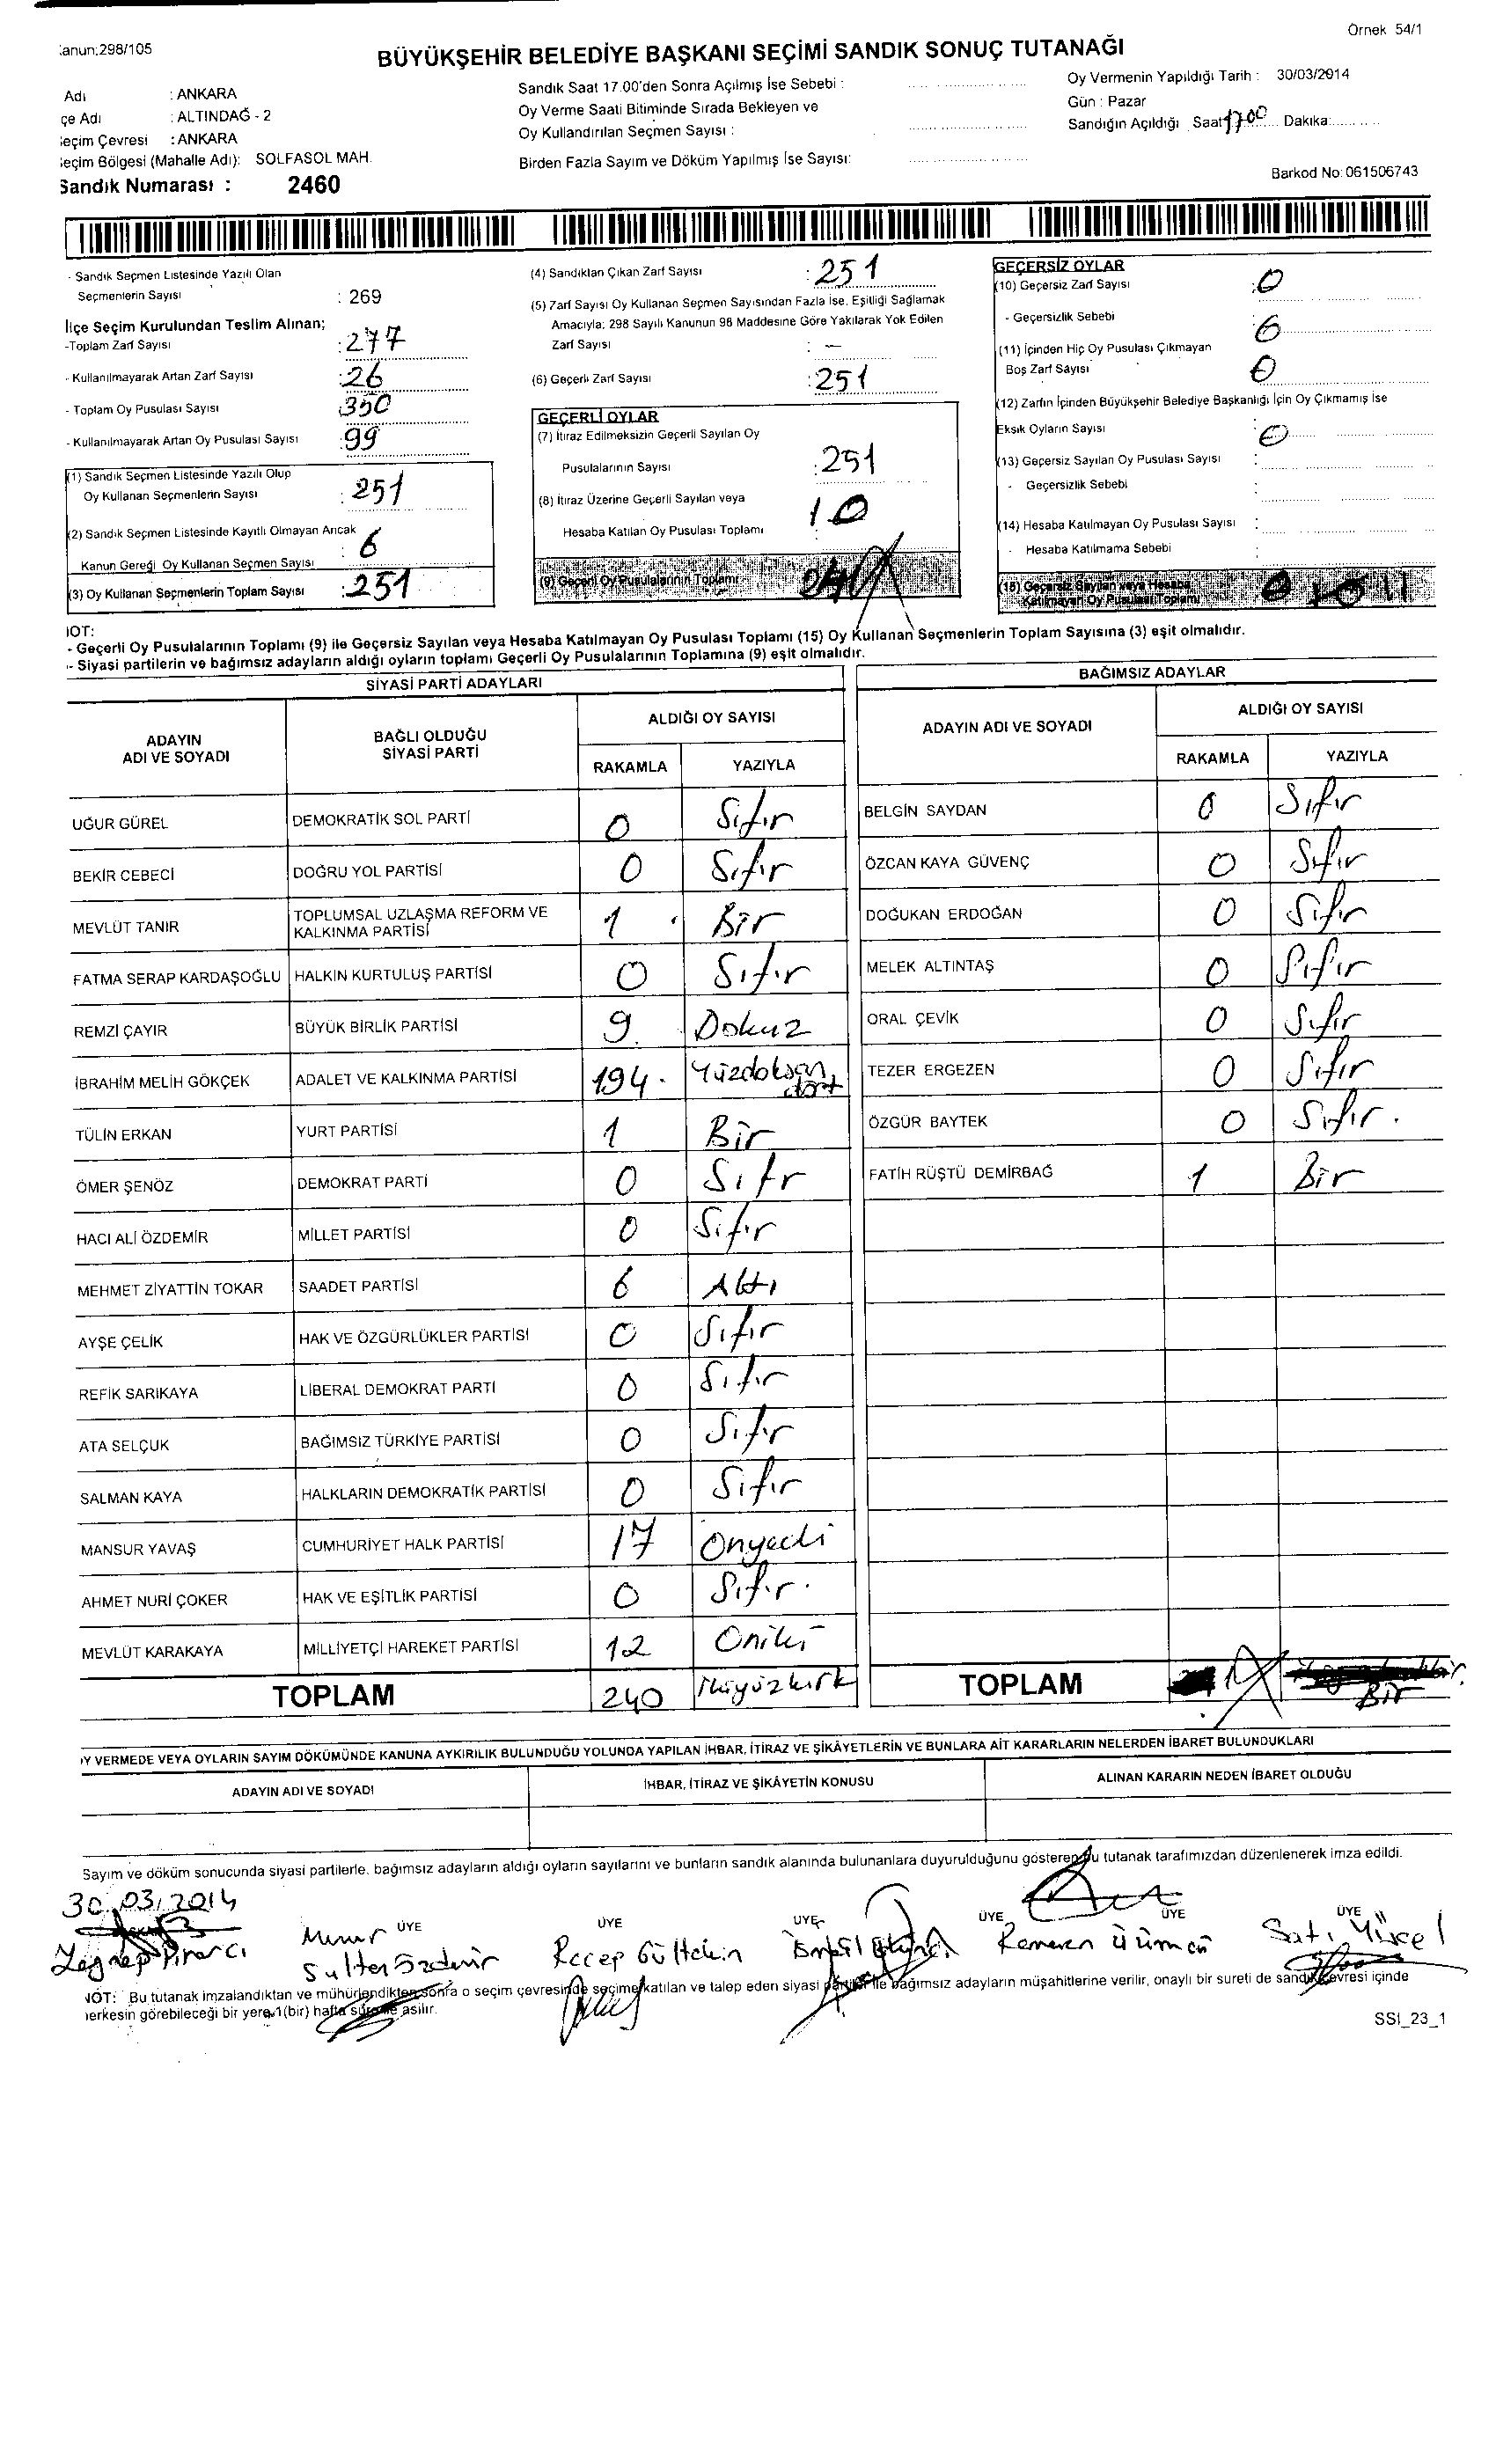 Örnek 54/1
:anun:298/105
BÜYÜKŞEHİR BELEDİYE BAŞKANI SEÇİMİ SANDIK SONUÇ TUTANAĞI
Adı : ANKARA
çe Adı : ALTINDAĞ - 2
eçim Çevresi : ANKARA
eçim Bölgesi (Mahalle Adı): SOLFASOL MAH.
Sandık Numarası : 2460
Sandık Saat 17.00'den Sonra Açılmış İse Sebebi :
Oy Verme Saati Bitiminde Sırada Bekleyen ve
Oy Kullandırılan Seçmen Sayısı :
Birden Fazla Sayım ve Döküm Yapılmış İse Sayısı:
Oy Vermenin Yapıldığı Tarih : 30/03/2014
Gün : Pazar
Sandığın Açıldığı Saat 17:00 Dakika:
Barkod No: 061506743
- Sandık Seçmen Listesinde Yazılı Olan
Seçmenlerin Sayısı : 269
İlçe Seçim Kurulundan Teslim Alınan;
-Toplam Zarf Sayısı : 277
- Kullanılmayarak Artan Zarf Sayısı : 26
- Toplam Oy Pusulası Sayısı : 350
- Kullanılmayarak Artan Oy Pusulası Sayısı : 99
(1) Sandık Seçmen Listesinde Yazılı Olup
Oy Kullanan Seçmenlerin Sayısı : 251
(2) Sandık Seçmen Listesinde Kayıtlı Olmayan Ancak
Kanun Gereği Oy Kullanan Seçmen Sayısı :
(3) Oy Kullanan Seçmenlerin Toplam Sayısı : 251
(4) Sandıktan Çıkan Zarf Sayısı : 251
(5) Zarf Sayısı Oy Kullanan Seçmen Sayısından Fazla İse, Eşitliği Sağlamak
Amacıyla; 298 Sayılı Kanunun 98 Maddesine Göre Yakılarak Yok Edilen
Zarf Sayısı : —
(6) Geçerli Zarf Sayısı : 251
GEÇERLİ OYLAR
(7) İtiraz Edilmeksizin Geçerli Sayılan Oy
Pusulalarının Sayısı : 251
(8) İtiraz Üzerine Geçerli Sayılan veya
Hesaba Katılan Oy Pusulası Toplamı :
(9) Geçerli Oy Pusulalarının Toplamı
GEÇERSİZ OYLAR
(10) Geçersiz Zarf Sayısı : 0
- Geçersizlik Sebebi :
(11) İçinden Hiç Oy Pusulası Çıkmayan
Boş Zarf Sayısı 0
(12) Zarfın İçinden Büyükşehir Belediye Başkanlığı İçin Oy Çıkmamış İse
Eksik Oyların Sayısı : 0
(13) Geçersiz Sayılan Oy Pusulası Sayısı :
- Geçersizlik Sebebi :
(14) Hesaba Katılmayan Oy Pusulası Sayısı :
- Hesaba Katılmama Sebebi :
(15) Geçersiz Sayılan veya Hesaba
Katılmayan Oy Pusulası Toplamı
IOT:
- Geçerli Oy Pusulalarının Toplamı (9) ile Geçersiz Sayılan veya Hesaba Katılmayan Oy Pusulası Toplamı (15) Oy Kullanan Seçmenlerin Toplam Sayısına (3) eşit olmalıdır.
- Siyasi partilerin ve bağımsız adayların aldığı oyların toplamı Geçerli Oy Pusulalarının Toplamına (9) eşit olmalıdır.
SİYASİ PARTİ ADAYLARI
ADAYIN ADI VE SOYADI BAĞLI OLDUĞU SİYASİ PARTİ ALDIĞI OY SAYISI
RAKAMLA YAZIYLA
UĞUR GÜREL DEMOKRATİK SOL PARTİ 0 Sıfır
BEKİR CEBECİ DOĞRU YOL PARTİSİ 0 Sıfır
MEVLÜT TANIR TOPLUMSAL UZLAŞMA REFORM VE KALKINMA PARTİSİ 1 Bir
FATMA SERAP KARDAŞOĞLU HALKIN KURTULUŞ PARTİSİ 0 Sıfır
REMZİ ÇAYIR BÜYÜK BİRLİK PARTİSİ 9 Dokuz
İBRAHİM MELİH GÖKÇEK ADALET VE KALKINMA PARTİSİ 194 Yüzdoksan dört
TÜLİN ERKAN YURT PARTİSİ 1 Bir
ÖMER ŞENÖZ DEMOKRAT PARTİ 0 Sıfr
HACI ALİ ÖZDEMİR MİLLET PARTİSİ 0 Sıfır
MEHMET ZİYATTİN TOKAR SAADET PARTİSİ 6 Altı
AYŞE ÇELİK HAK VE ÖZGÜRLÜKLER PARTİSİ 0 Sıfır
REFİK SARIKAYA LİBERAL DEMOKRAT PARTİ 0 Sıfır
ATA SELÇUK BAĞIMSIZ TÜRKİYE PARTİSİ 0 Sıfır
SALMAN KAYA HALKLARIN DEMOKRATİK PARTİSİ 0 Sıfır
MANSUR YAVAŞ CUMHURİYET HALK PARTİSİ 17 Onyedi
AHMET NURİ ÇOKER HAK VE EŞİTLİK PARTİSİ 0 Sıfır.
MEVLÜT KARAKAYA MİLLİYETÇİ HAREKET PARTİSİ 12 Oniki
TOPLAM 240 İkiyüzkırk
BAĞIMSIZ ADAYLAR
ADAYIN ADI VE SOYADI ALDIĞI OY SAYISI
RAKAMLA YAZIYLA
BELGİN SAYDAN 0 Sıfır
ÖZCAN KAYA GÜVENÇ 0 Sıfır
DOĞUKAN ERDOĞAN 0 Sıfır
MELEK ALTINTAŞ 0 Sıfır
ORAL ÇEVİK 0 Sıfır
TEZER ERGEZEN 0 Sıfır
ÖZGÜR BAYTEK 0 Sıfır.
FATİH RÜŞTÜ DEMİRBAĞ 1 Bir
TOPLAM 1 Bir
OY VERMEDE VEYA OYLARIN SAYIM DÖKÜMÜNDE KANUNA AYKIRILIK BULUNDUĞU YOLUNDA YAPILAN İHBAR, İTİRAZ VE ŞİKÂYETLERİN VE BUNLARA AİT KARARLARIN NELERDEN İBARET BULUNDUKLARI
ADAYIN ADI VE SOYADI İHBAR, İTİRAZ VE ŞİKÂYETİN KONUSU ALINAN KARARIN NEDEN İBARET OLDUĞU
Sayım ve döküm sonucunda siyasi partilerle, bağımsız adayların aldığı oyların sayılarını ve bunların sandık alanında bulunanlara duyurulduğunu gösteren bu tutanak tarafımızdan düzenlenerek imza edildi.
30.03.2014
ÜYE ÜYE ÜYE ÜYE ÜYE ÜYE
Zeynep Pınarcı
Recep Gültekin
Satı Yücel
NOT: Bu tutanak imzalandıktan ve mühürlendikten sonra o seçim çevresinde seçime katılan ve talep eden siyasi partiler ile bağımsız adayların müşahitlerine verilir, onaylı bir sureti de sandık çevresi içinde
herkesin görebileceği bir yere 1(bir) hafta süre ile asılır.
SSI_23_1